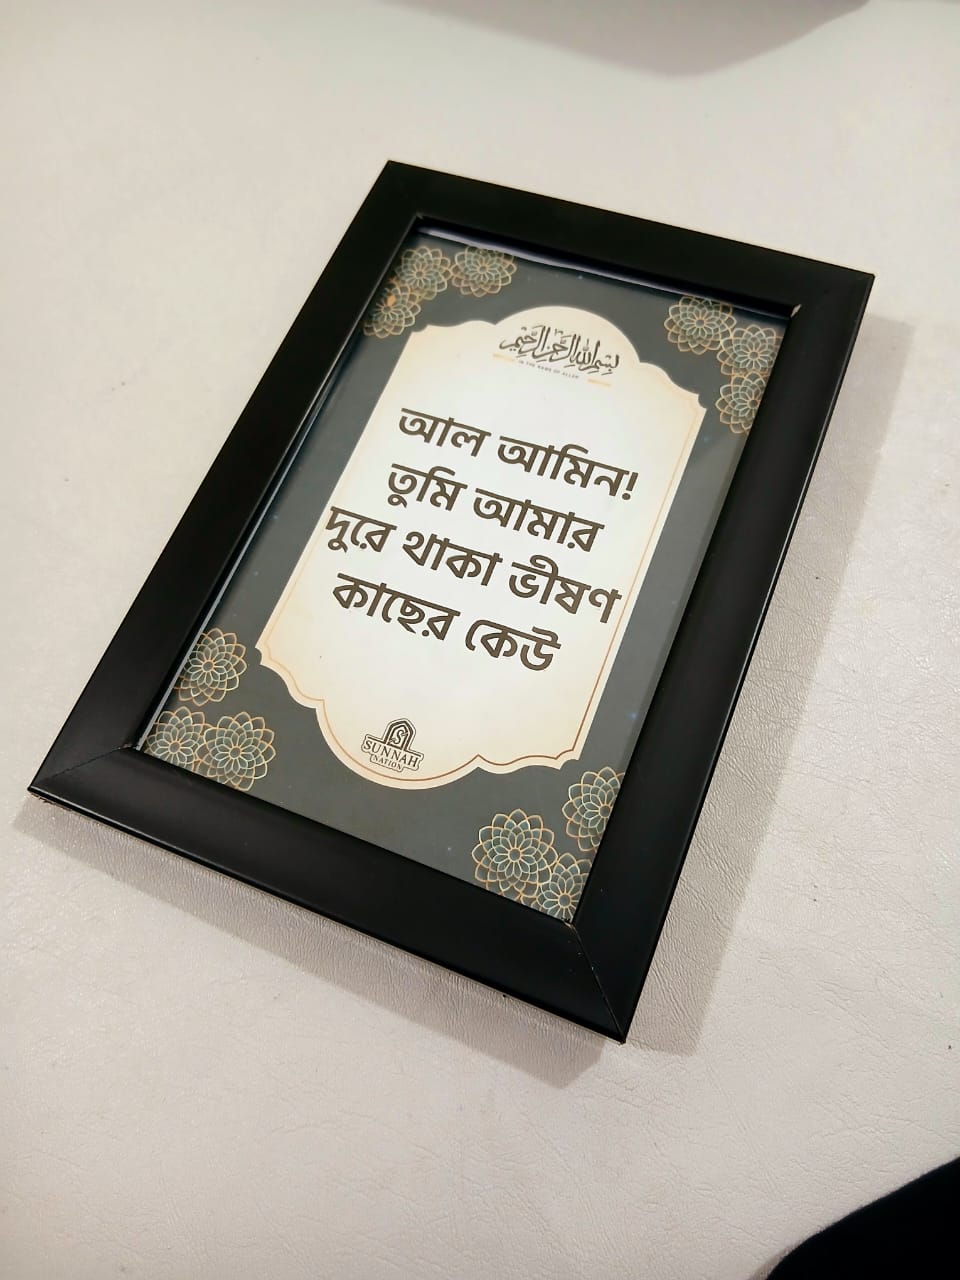 بسم الله الرحمن الرحيم
IN THE NAME OF ALLAH
আল আমিন!
তুমি আমার
দুরে থাকা ভীষণ
কাছের কেউ
SUNNAH
NATION